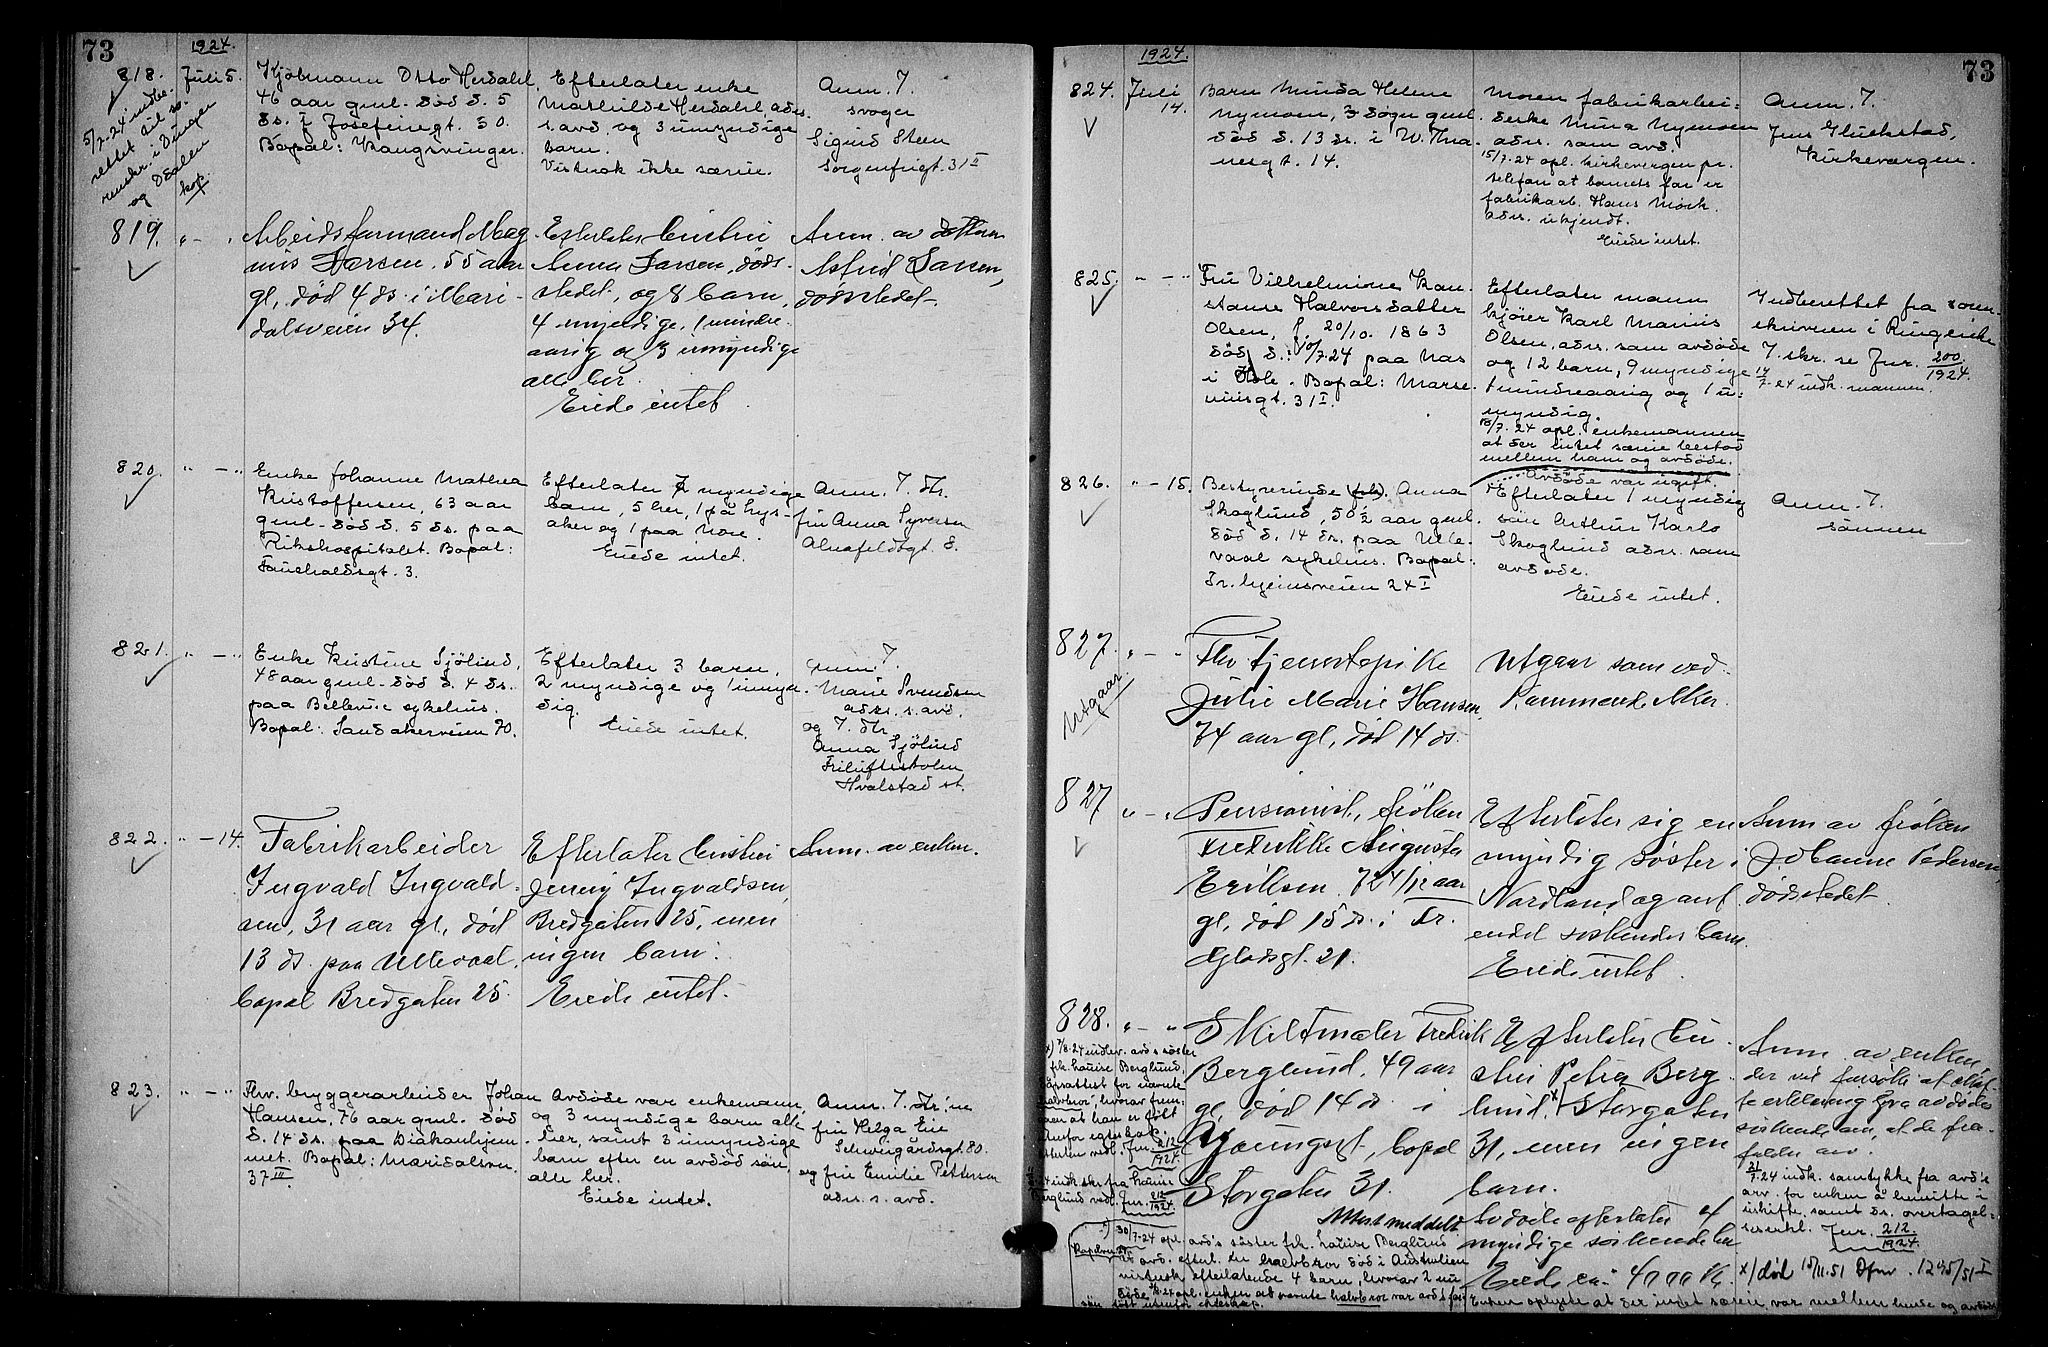 73
1924.
818.
Juli 5.
Kjöbmann Otto Herdahl,
46 aar gml. död d. 5
ds. i Josefinegt. 30.
Bopäl: Kongsvinger.
Efterlater enke
Mathilde Herdahl, adr.
s. avd. og 3 umyndige
barn.
Vistnok ikke særeie.
Anm. 7.
svoger
Sigurd Steen
Sorgenfrigt. 31 II
5/7-24 indbe-
rettet til so-
renskr. i Vinger
og Odalen
kop.
819.
" — "
Arbeidsformand Mag-
nus Larsen. 55 aar
gl, död 4 ds. i Mari-
dalsveien 34.
Efterlater hustru
Anna Larsen, döds-
stedet, og 8 barn,
4 myndige, 1 mindre-
aarig og 3 umyndige
alle her.
Eiede intet.
Anm. av datteren
Astrid Larsen,
dödsstedet.
820.
" — "
Enke Johanne Mathea
Kristoffersen, 63 aar
gml. död d. 5 ds. paa
Rikshospitalet. Bopæl:
Fauchaldsgt. 3.
Efterlater 7 myndige
barn, 5 her, 1 på Lys-
aker og 1 paa Nore.
Eiede intet.
Anm. 7. dtr.
fru Anna Syversen
Alnafeldtgt 8.
821.
" — "
Enke Kristine Sjölind,
48 aar gml. död d. 4 ds.
paa Bellevue sykehus.
Bopæl: Sandakerveien 70.
Efterlater 3 barn,
2 myndige og 1 umyn-
dig.
Eiede intet.
Anm. 7.
Marie Svendsen
adr. s. avd.
og 7. dtr.
Anna Sjölind
Friluftsskolen
Hvalstad st.
822.
" — 14.
Fabrikarbeider
Ingvald Ingvald-
sen, 31 aar gl, död
13 ds. paa Ullevaal,
bopæl Bredgaten 25.
Efterlater hustru
Jenny Ingvaldsen,
Bredgaten 25, men
ingen barn.
Eiede intet.
Anm. av enken.
823.
" — "
Fhv. bryggeriarbeider Johan
Hansen, 76 aar gml. död
d. 14 ds. paa Diakonhjem-
met. Bopæl: Maridalsvn.
37 III
Avdöde var enkemann,
og 3 myndige barn alle
her, samt 3 umyndige
barn efter en avdöd sön,
alle her.
Eiede intet.
Anm. 7. dtr:ne
fru Helga Lie
Schweigårdsgt. 80.
og fru Emilie Pettersen
adr. s. avd.
73
1924.
824.
Juli
14.
Barn Minda Helene
Nymoen, 3 dögn gml.
död d. 13 ds. i W. Thra-
nesgt. 14.
Moren fabrikarbei-
derske Mina Nymoen
adr. som avd.
15/7-24 opl. kirkevergen pr.
telefon at barnets far er
fabrikarb. Hans Mörk.
Adr. ukjendt.
Eiede intet.
Anm. 7.
Jens Gluckstad,
Kirkevergen.
825.
" — "
Fru Vilhelmine Kon-
stanse Halvorsdatter
Olsen, f. 20/10. 1863
död d. 10/7-24 paa Næs
i Hole. Bopæl: Marse-
niusgt. 31 I.
Efterlater mann
kjörer Karl Marius
Olsen, adr. som avdöde
og 12 barn, 9 myndige
1 mindreaarig og 1 u-
myndig.
18/7-24 opl. enkemannen
at der intet særeie bestod
mellem ham og avdöde.
Indberettet fra soren-
skriveren i Ringerike
7. skr. se Jnr. 200/1924.
14/7-24 indk. mannen.
826.
" — 15.
Bestyrerinde (frk). Anna
Skoglund, 50 1/2 aar gml.
död d. 14 ds. paa Ulle-
vaal sykehus. Bopæl:
Tr.hjemsveien 24 I
Avdöde var ugift.
Efterlater 1 myndig
sön Arthur Karlo
Skoglund adr. som
avdöde.
Eiede intet.
Anm. 7.
sönnen
827.
Utgaar.
" — "
Fhv. tjenestepike
Julie Marie Hansen,
74 aar gl, död 14 ds.
Utgaar som ved-
kommende Aker.
827
" — "
Pensionist, fröken
Fredrikke Augusta
Eriksen. 72 4/12 aar
gl, död 15 ds. i Fr.
Glads gt. 21.
Efterlater sig en
myndig söster i
Nordland og ant.
endel söskendes barn.
Eiede intet.
Anm av fröken
Johanne Pedersen,
dödsstedet.
828.
" — "
Skiltmaler Fredrik
Berglund. 49 aar
gl, död 14 ds. i
Youngsgt, bopæl
Storgaten 31.
Attest meddelt
Efterlater hu-
stru Petra Berg-
lund,x Storgaten
31, men ingen
barn.
Avdöde efterlater
myndige söskende her
Eiede ca. 4000 Kr.
Anm. av enken,
der vil forsöke at skaf-
fe erklæring fra avdödes
söskende om, at de fra-
falder arv.
31/7-24 indk. samtykke fra avd's
arv. for enken å hensitte i
uskifte, samt ds. overtagel-
seserkl. Jnr. 212/1924.
x/ död 15/11.51 Dfnr. 1245/51 I
x) 7/8-24 indlev. avd s söster
frk. Louise Berglund,
halvbror, hvorav frem-
gaar at han er född
utenfor egteskap.
Jnr. 212/1924.
indk. skr. fra Louise
Berglund vedl. Jnr. 212/1924
30/7-24 opl. avd's söster frk. Louise Berglund
at avd. efterl. en halvbror död i Australien
vistnok efterlatende 4 barn, hvorav 2 um
opl. enken at nævnte halvbror var avd's
född utenfor egteskap.
Enken oplyste at der intet særeie var mellem hende og avdöde